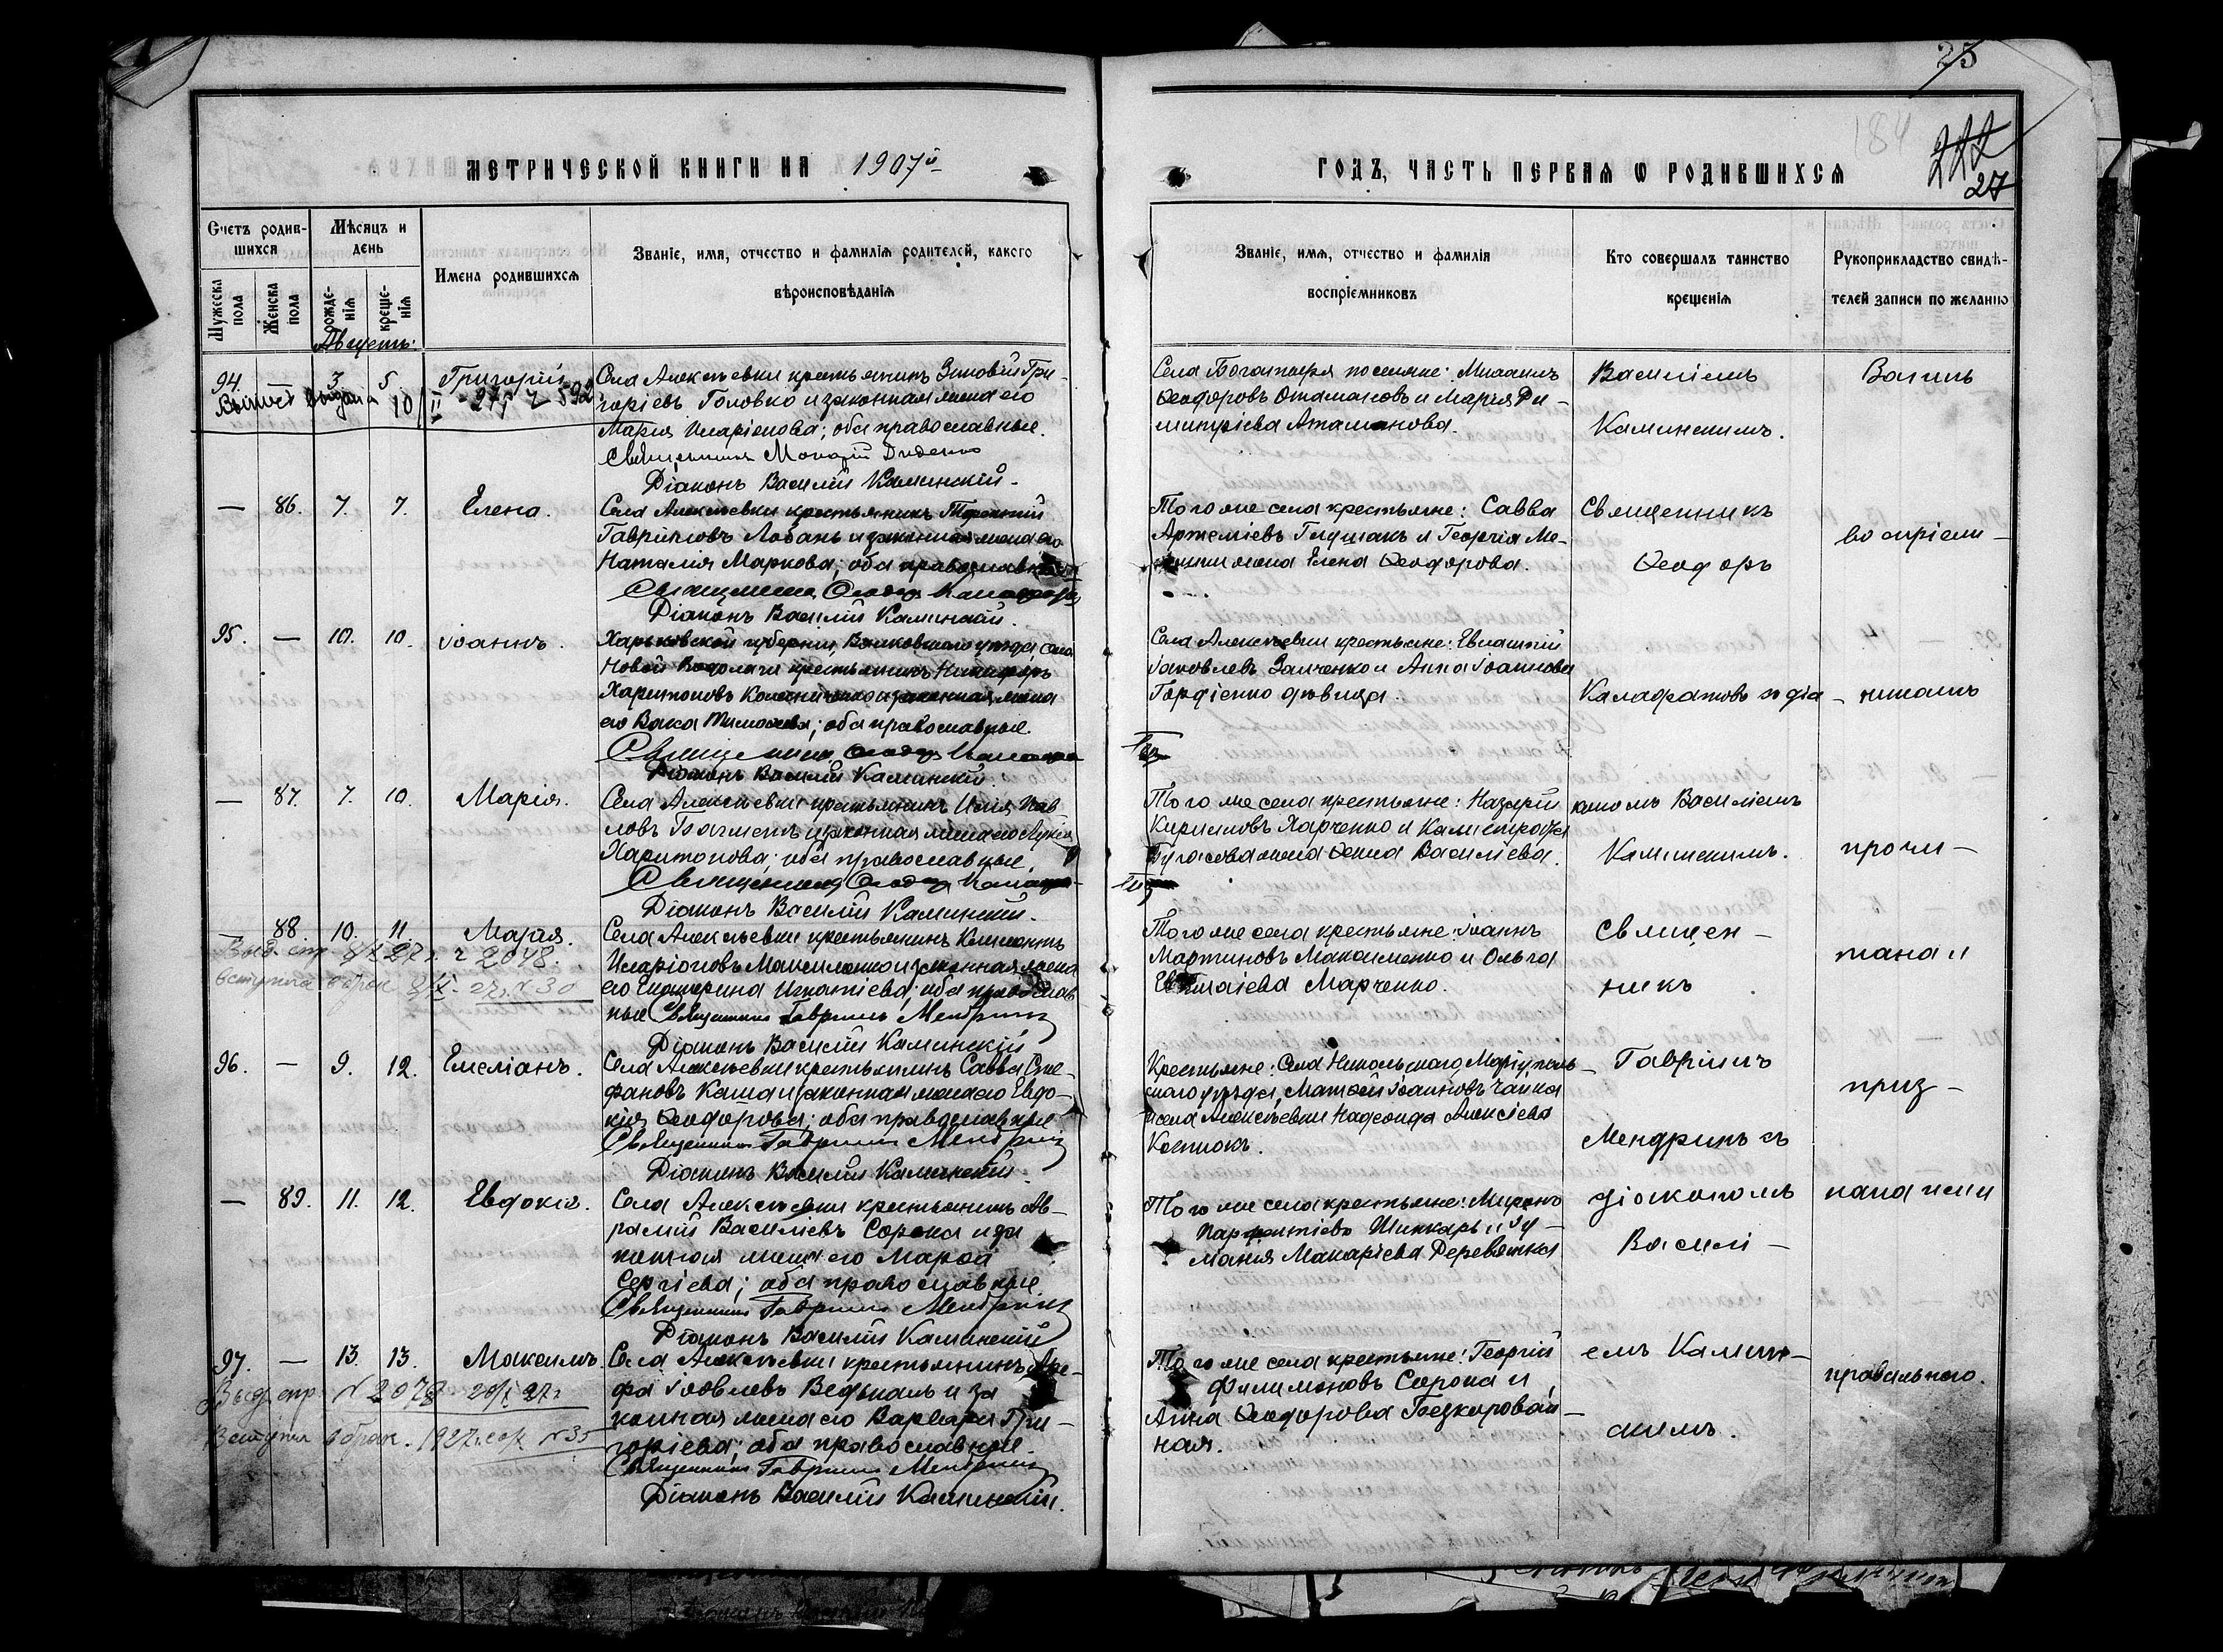 25
184
222
27
МЕТРИЧЕСКОЙ КНИГИ НА 1907й
ГОДЪ, ЧАСТЬ ПЕРВАЯ Ѡ РОДИВШИХСЯ
Счетъ родив-
шихся
Мужеска
пола
Женска
пола
Мѣсяцъ и
день
рожде-
нія
креще-
нія
Имена родившихся
Званіе, имя, отчество и фамилія родителей, какого
вѣроисповѣданія
Званіе, имя, отчество и фамилія
воспріемниковъ
Кто совершалъ таинство
крещенія
Рукоприкладство свидѣ-
телей записи по желанію
Августъ:
94. — 3. 5. Григорій
Села Алексѣевки крестьянинъ Зиновій Гри-
горіевъ Головко и законная жена его
Марія Иларіонова; оба православные.
Священникъ
Діаконъ Василій Каминскій.
Села Богатыря поселяне: Михаилъ
Ѳеодоровъ Отамановъ и Марія Ди-
митріева Атаманова.
Василіемъ
Каминскимъ.
— 86. 7. 7. Елена.
Села Алексѣевки крестьянинъ Терентій
Гавріиловъ Лобань и законная жена его
Наталія Маркова; оба православные
Діаконъ Василій Каминскій.
Того же села крестьяне: Савва
Артеміевъ Глушакъ и Георгія Ме-
жена Елена Ѳеодорова.
Священникъ
Ѳеодоръ
воспріем-
95. — 10. 10. Іоаннъ.
Харьковской губерніи, Валковскаго уѣзда села
Новой Водолаги крестьянинъ Никифоръ
Харитоновъ и законная жена
его Васса Тимоѳеева; оба православные.
Діаконъ Василій Каминскій
Села Алексѣевки крестьяне: Евлампій
Іаковлевъ Заиченко и Анна Іоаннова
Гордіенко дѣвица.
Калафатовъ съ діа-
никамъ
— 87. 7. 10. Марія.
Села Алексѣевки крестьянинъ Илія Пав
ловъ и законная жена его Лукія
Харитонова; оба православные.
Діаконъ Василій Каминскій.
Того же села крестьяне: Назарій
Кирилловъ Харченко и Калистрата
жена Ѳекла Василіева.
кономъ Василіемъ
Каминскимъ.
прочи-
— 88. 10. 11. Марія.
2048.
Села Алексѣевки крестьянинъ Климентъ
Иларіоновъ Максименко и законная жена
его Екатерина Игнатіева; оба православ
ные Священникъ Гавріилъ Мендринъ
Діаконъ Василій Каминскій
Того же села крестьяне: Іоаннъ
Мартиновъ Максименко и Ольга
Марченко.
Священ-
никъ
тана и
96. — 9. 12. Емеліанъ.
Села Алексѣевки крестьянинъ Савва Сте-
фановъ Каша и законная жена его Евдо-
кія Ѳеодорова; оба православные
Священникъ Гавріилъ Мендринъ
Діаконъ Василій Каминскій.
Крестьяне: Села Никольскаго, Маріуполь-
скаго уѣзда, Матѳей Іоанновъ Чайка
и села Алексѣевки Надежда Алексіева
Костюкъ.
Гавріилъ
Мендринъ съ
приз-
— 89. 11. 12. Евдокія.
Села Алексѣевки крестьянинъ Ав-
рамій Василіевъ Сорока и за
конная жена его Марѳа
Сергіева; оба православные.
Священникъ Гавріилъ Мендринъ
Діаконъ Василій Каминскій
Того же села крестьяне: Миронъ
Парѳентіевъ Шинкарь и Іу-
ліанія Макаріева Деревянка
діакономъ
Василі-
нана ими
97. — 13. 13. Максимъ.
Села Алексѣевки крестьянинъ Аре-
фа Іаковлевъ Ведькалъ и за
конная жена его Варвара Гри-
горіева; оба православные.
Священникъ Гавріилъ Мендринъ
Діаконъ Василій Каминскій.
Того же села крестьяне: Георгій
Филимоновъ Сорока и
Анна Ѳеодорова Безкоровай-
ная.
емъ Камин-
скимъ.
правильною.